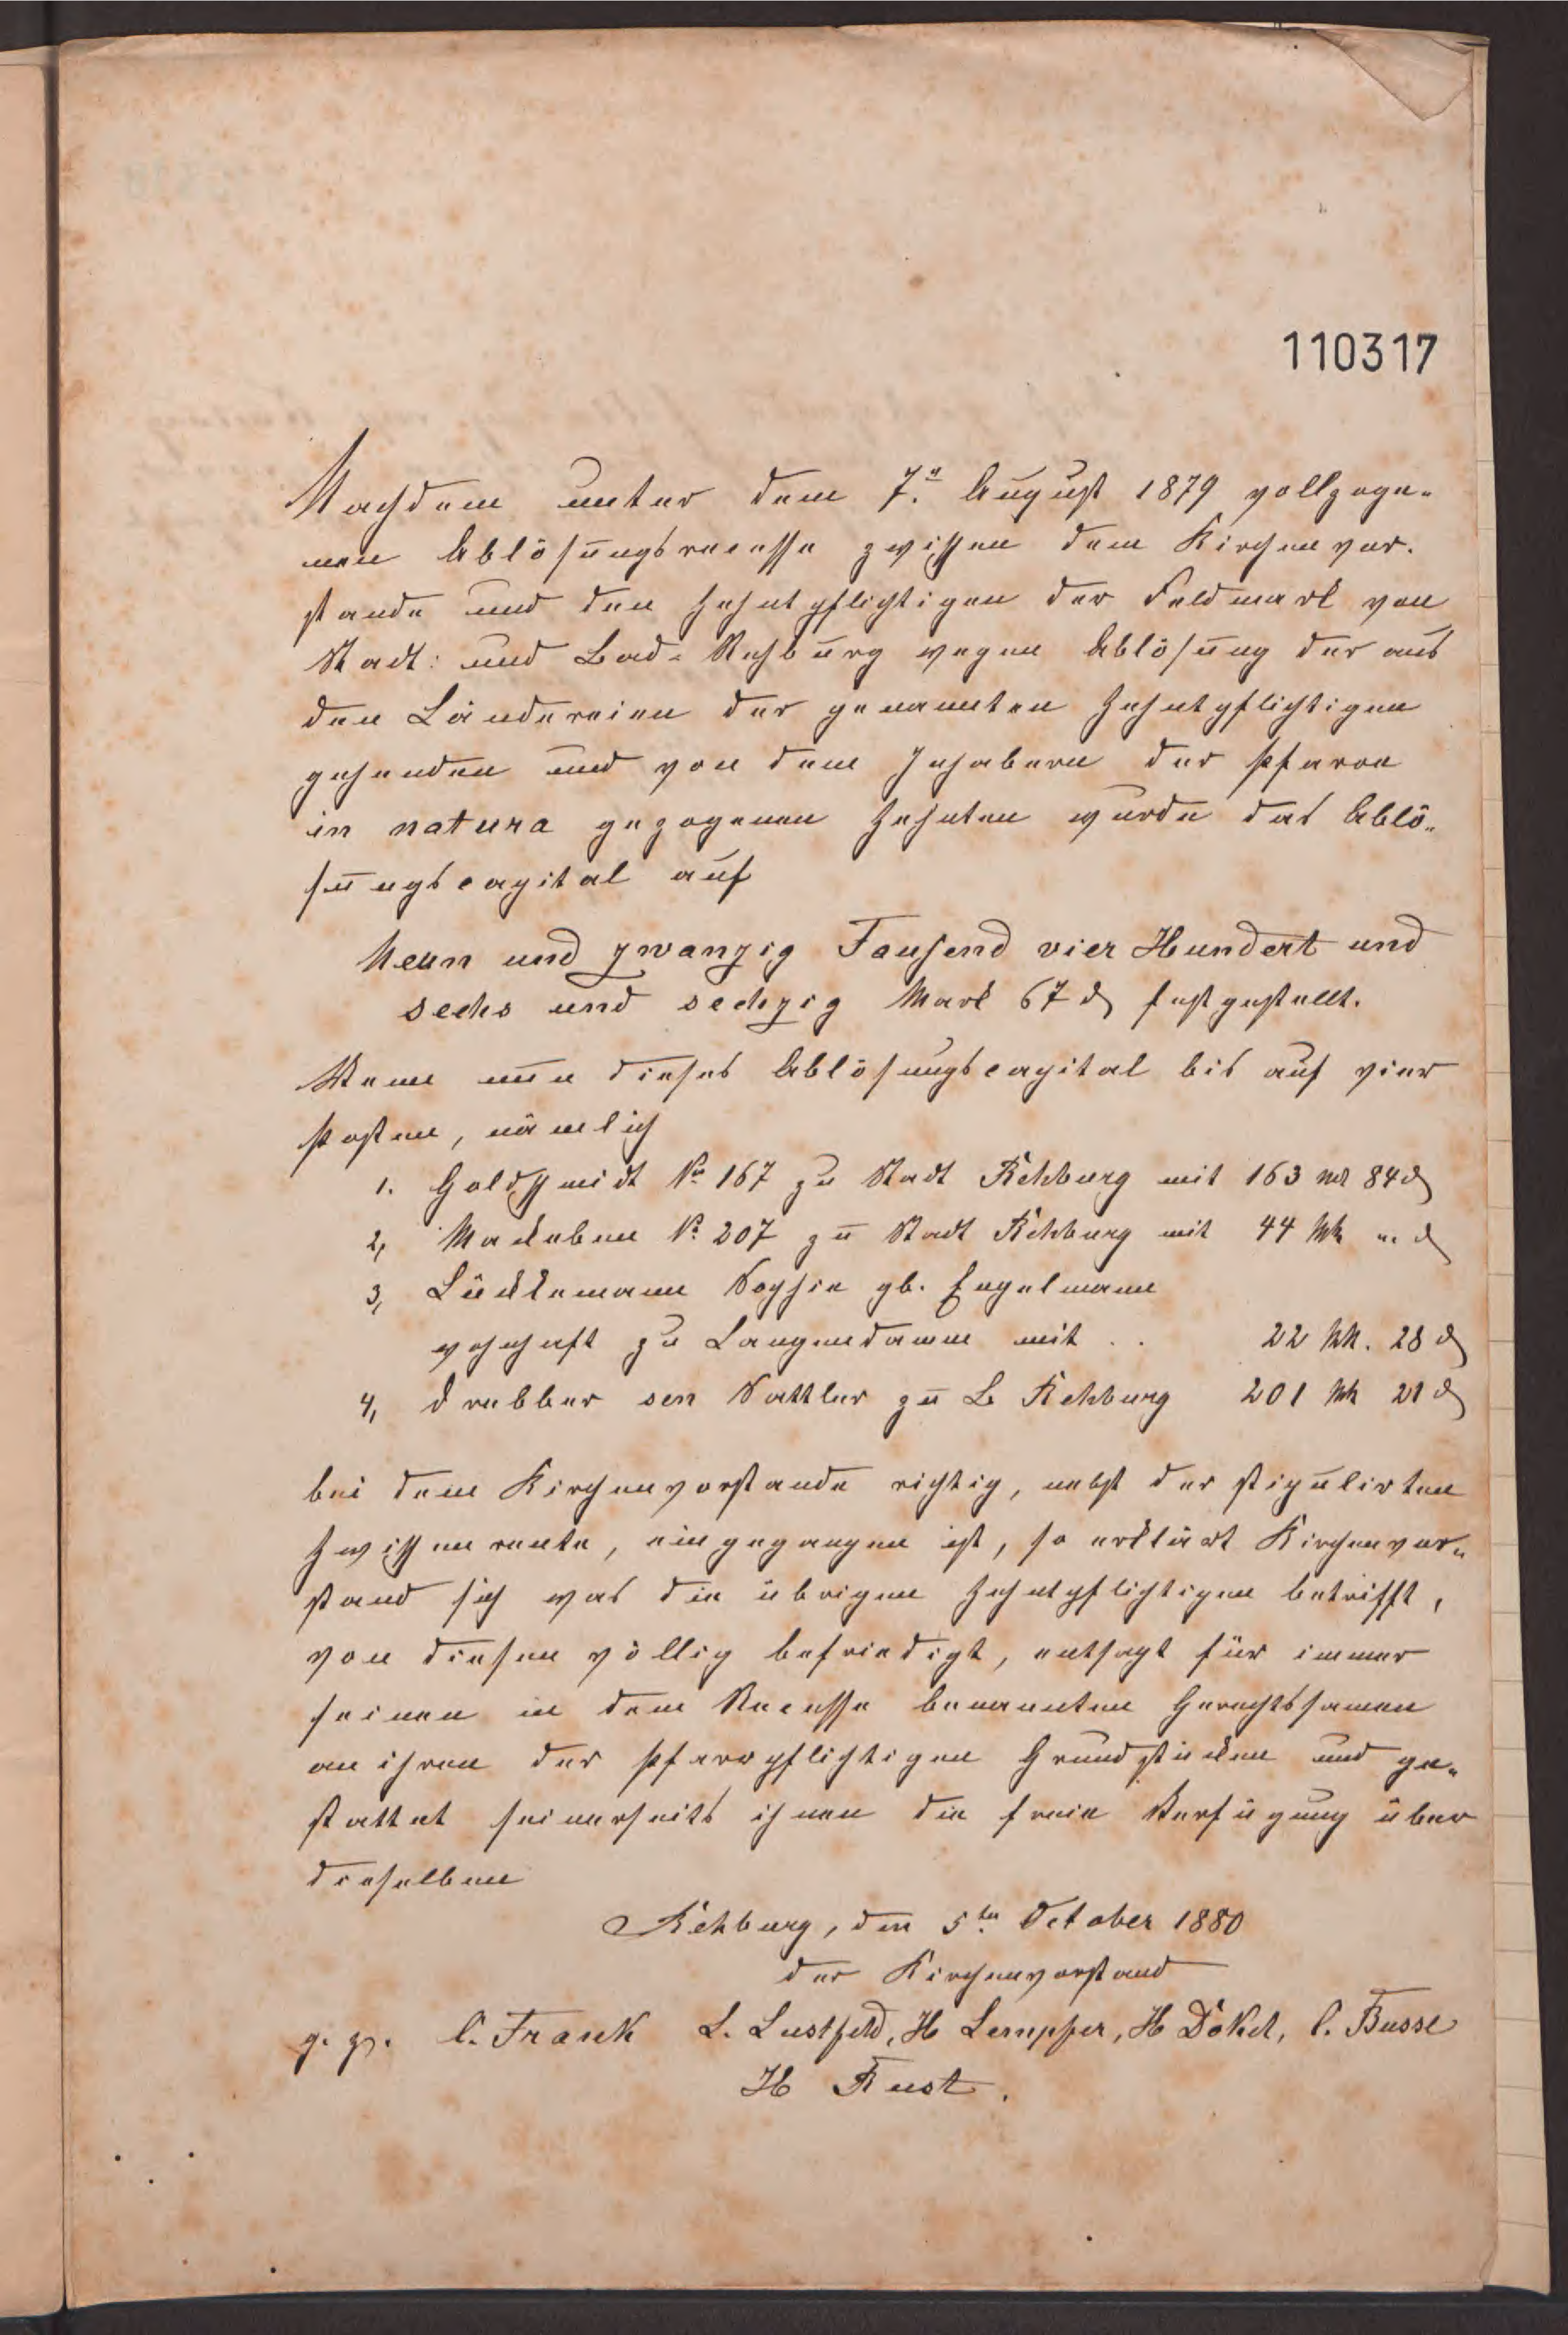 110317
Nachdem unter dem 7.n August 1879 vollzoge-
nen Ablösungsrecesse zwischen dem Kirchenvor-
stande und den Zehntpflichtigen der Feldmark von
Stadt: und Bad-Rehburg wegen Ablösung der aus
den Ländereien der genannten Zehntpflichtigen
gehenden und von dem Inhabern der Pfarre
in natura gezogenen Zehnten wurde das Ablö-
sungscapital auf
Neun und zwanzig Tausend vier Hundert und
sechs und sechzig Mark 67 ₰ festgestellt.
Wenn nun dieses Ablösungscapital bis auf vier
Posten, nämlich
1. Goldschmidt No 167 zu Stadt Rehburg mit 163 M 84 ₰
2, Mackeben No 207 zu Stadt Rehburg mit 44 Mk " ₰
3, Lückemann Sophie gb. Engelmann
wohnhaft zu Langendamm mit . . 22 Mk. 28 ₰
4, Drebber sen Sattler zu B Rehburg 201 Mk 21 ₰
bei dem Kirchenvorstande richtig, nebst der stipulirten
Zwischenrente, eingegangen ist, so erklärt Kirchenvor-
stand sich was die übrigen Zehntpflichtigen betrifft,
von diesen völlig befriedigt, entsagt für immer
seinen in dem Recesse benannten Gerechtsamen
an ihren der Pfarrpflichtigen Grundstücken und ge-
stattet seinerseits ihnen die freie Verfügung über
dieselben
Rehburg, den 5ten October 1880
der Kirchenvorstand
g. z. C. Frank L. Lustfeld, H Lempfer, H Dökel, C. Busse
H Rust.